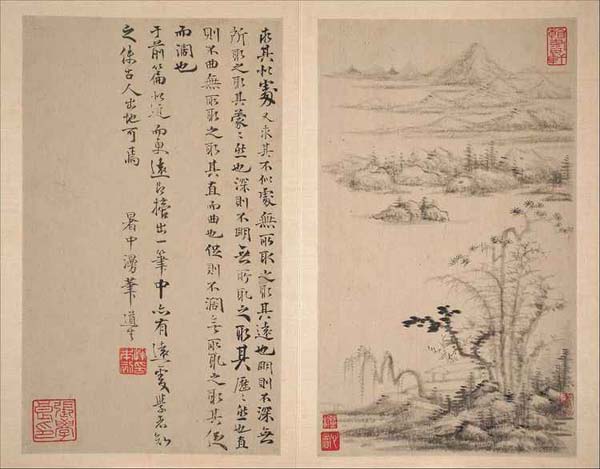 求其似處又求其不似處無所取之取其遠也明則不深無
所取之取其蒙〻然也深則不明無所取之取其歷〻然也直
則不曲無所取之取其直而曲也促則不濶無所取之取其促
而濶也
于前篇似近而更遠出一筆中亦有遠
之係古人出地可焉
暑中漫筆道生